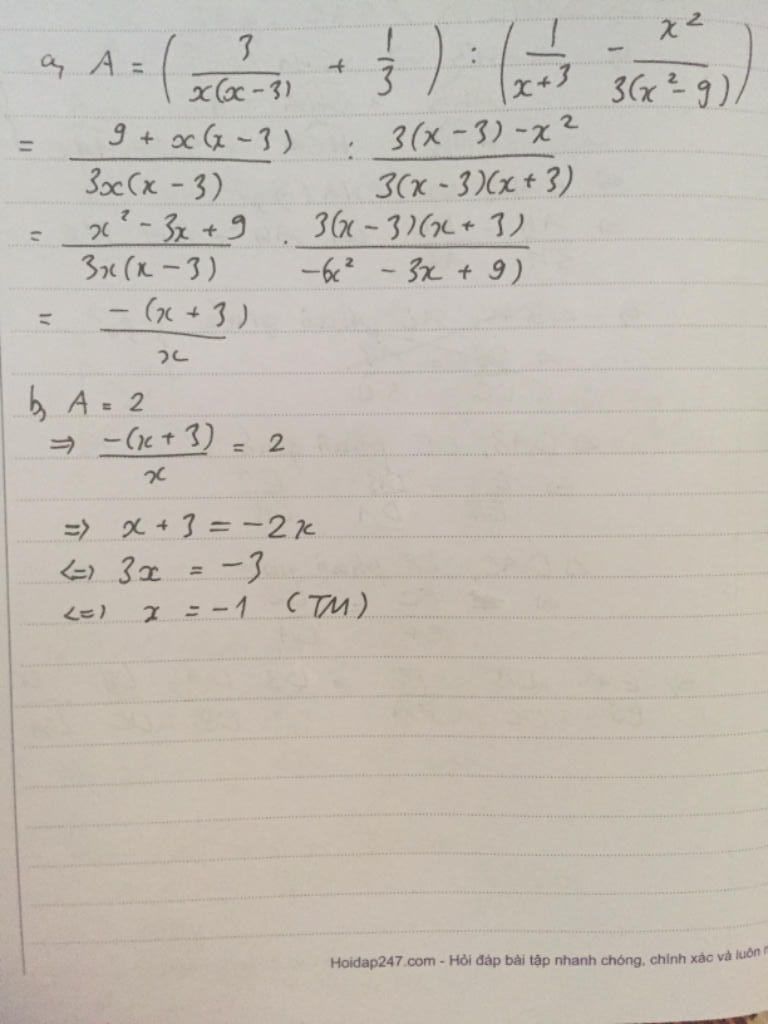 a, A = ( 3/(x(x-3)) + 1/3 ) : ( 1/(x+3) - x²/(3(x²-9)) )
= (9 + x(x-3))/(3x(x-3)) : (3(x-3)-x²)/(3(x-3)(x+3))
= (x²-3x+9)/(3x(x-3)) . (3(x-3)(x+3))/(-(x²-3x+9))
= (-(x+3))/x
b, A = 2
=> (-(x+3))/x = 2
=> x + 3 = -2x
<=> 3x = -3
<=> x = -1 (TM)
Hoidap247.com - Hỏi đáp bài tập nhanh chóng, chính xác và luôn